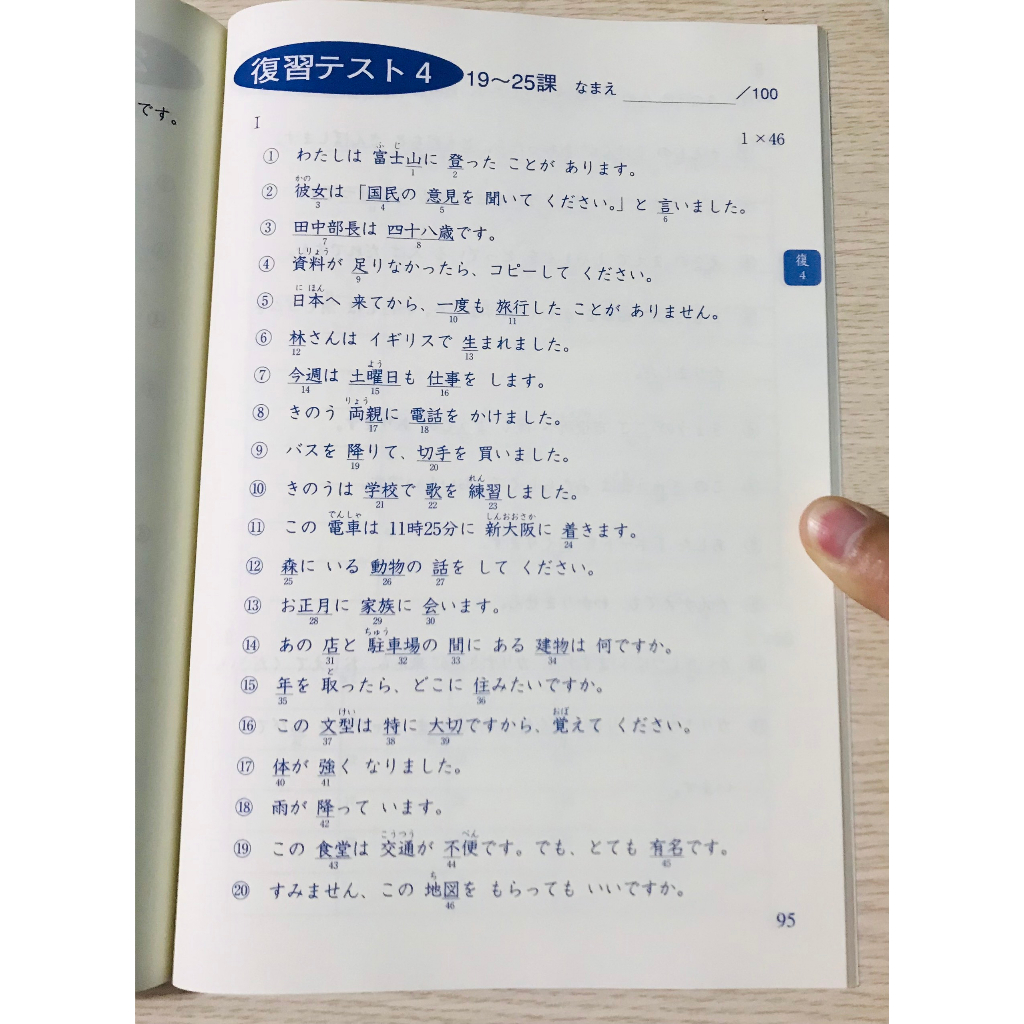 です。
復習テスト4 19～25課 なまえ ／100
I 1×46
① わたしは 富士山に 登った ことが あります。
② 彼女は 「国民の 意見を 聞いて ください。」と 言いました。
③ 田中部長は 四十八歳です。
④ 資料が 足りなかったら、コピーして ください。
⑤ 日本へ 来てから、一度も 旅行した ことが ありません。
⑥ 林さんは イギリスで 生まれました。
⑦ 今週は 土曜日も 仕事を します。
⑧ きのう 両親に 電話を かけました。
⑨ バスを 降りて、切手を 買いました。
⑩ きのうは 学校で 歌を 練習しました。
⑪ この 電車は 11時25分に 新大阪に 着きます。
⑫ 森に いる 動物の 話を して ください。
⑬ お正月に 家族に 会います。
⑭ あの 店と 駐車場の 間に ある 建物は 何ですか。
⑮ 年を 取ったら、どこに 住みたいですか。
⑯ この 文型は 特に 大切ですから、覚えて ください。
⑰ 体が 強く なりました。
⑱ 雨が 降って います。
⑲ この 食堂は 交通が 不便です。でも、とても 有名です。
⑳ すみません、この 地図を もらっても いいですか。
復
4
95